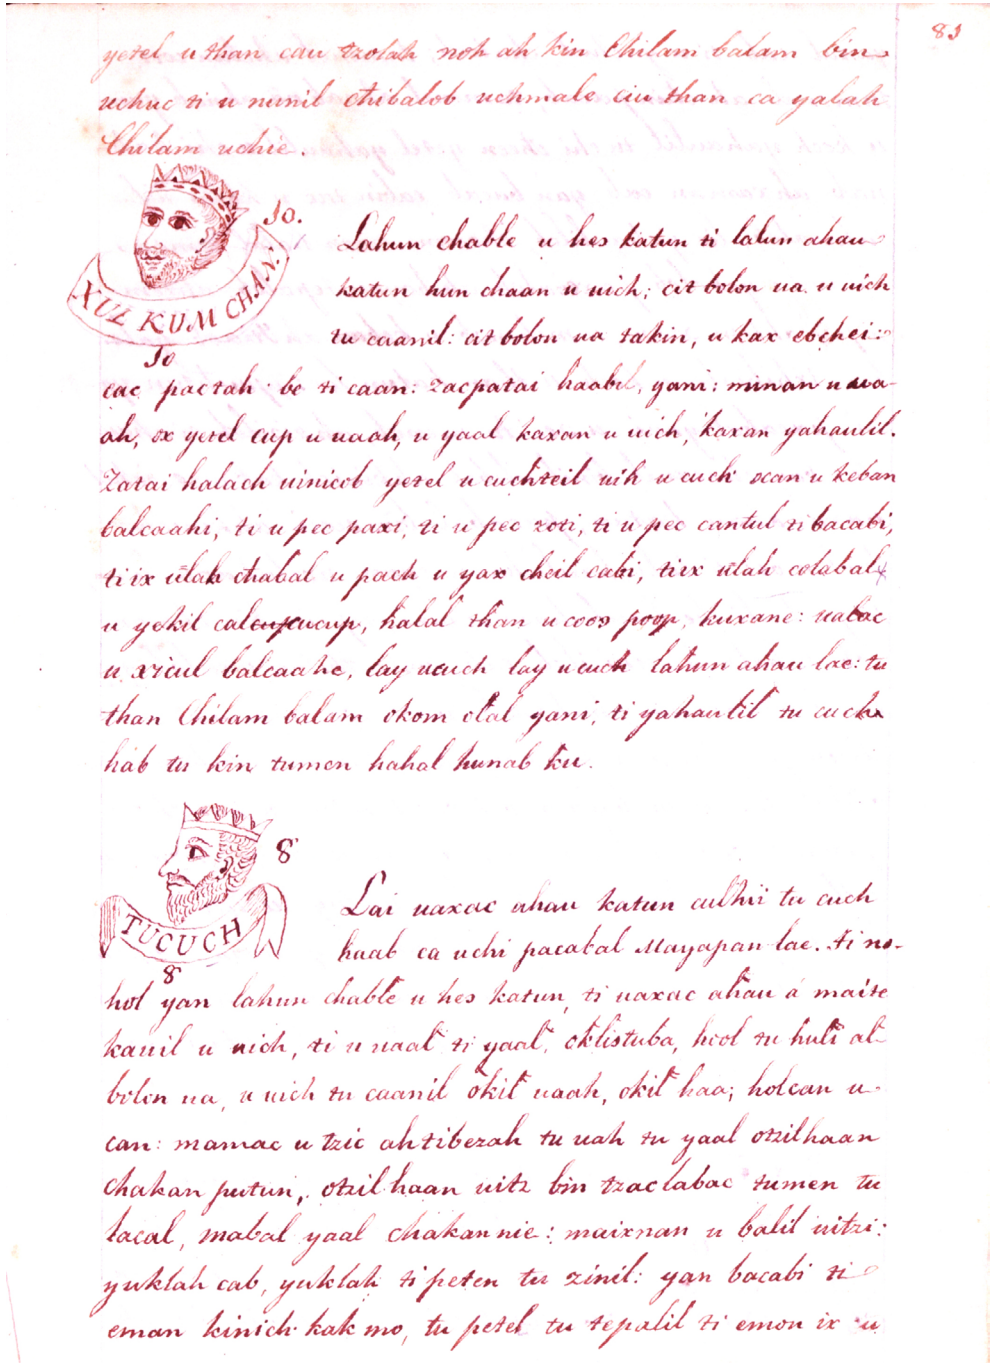 83
yetel u than cau tzolah noh ah kin Chilam balam bin
uchuc ti u nunil chibalob uchmale ciu than ca yalah
Chilam uchie.
10.
XUL KUM CHAN.
10
Lahun chable u hes katun ti lahun ahau
katun hun chaan u uich; cit bolon ua u uich
tu caanil: cit bolon ua takin, u kax ebchei:
cac pactah be ti caan: zacpatai haabil, yani: minan u ua-
ah, ox yetel cup u uaah, u yaal kaxan u uich, kaxan yahaulil.
Zatai halach uinicob yetel u cuchteil uih u cuch ocan u keban
balcaahi, ti u pec paxi, ti u pec zoti, ti u pec cantul ti bacabi,
tiix ulah chabal u pach u yax cheil cabi, tiix ulah colabal
u yekil calcupucup, halal than u coos poop, kuxane: uabac
u xicul balcaahe, lay ucuch lay u cuch lahun ahau lae: tu
than Chilam balam okom olal yani, ti yahaulil tu cuch
hab tu kin tumen hahal hunab ku.
8
TUCUCH
8
Lai uaxac ahau katun culhii tu cuch
haab ca uchi pacabal Mayapan lae. ti no-
hol yan lahun chable u hes katun, ti uaxac ahau á maite
kauil u uich, ti u uaal ti yaal, oklistuba, hool tu huli al-
bolon ua, u uich tu caanil okil uaah, okil haa; holcan u
can: mamac u tzic ahtibezah tu uah tu yaal otzilhaan
chakan putun, otzil haan uitz bin tzaclabac tumen tu
lacal, mabal yaal chakannie: maixnan u balil uitzi:
yuklah cab, yuklah ti peten tu zinil: yan bacabi ti
eman kinich kak mo, tu petel tu tepalil ti emon ix u